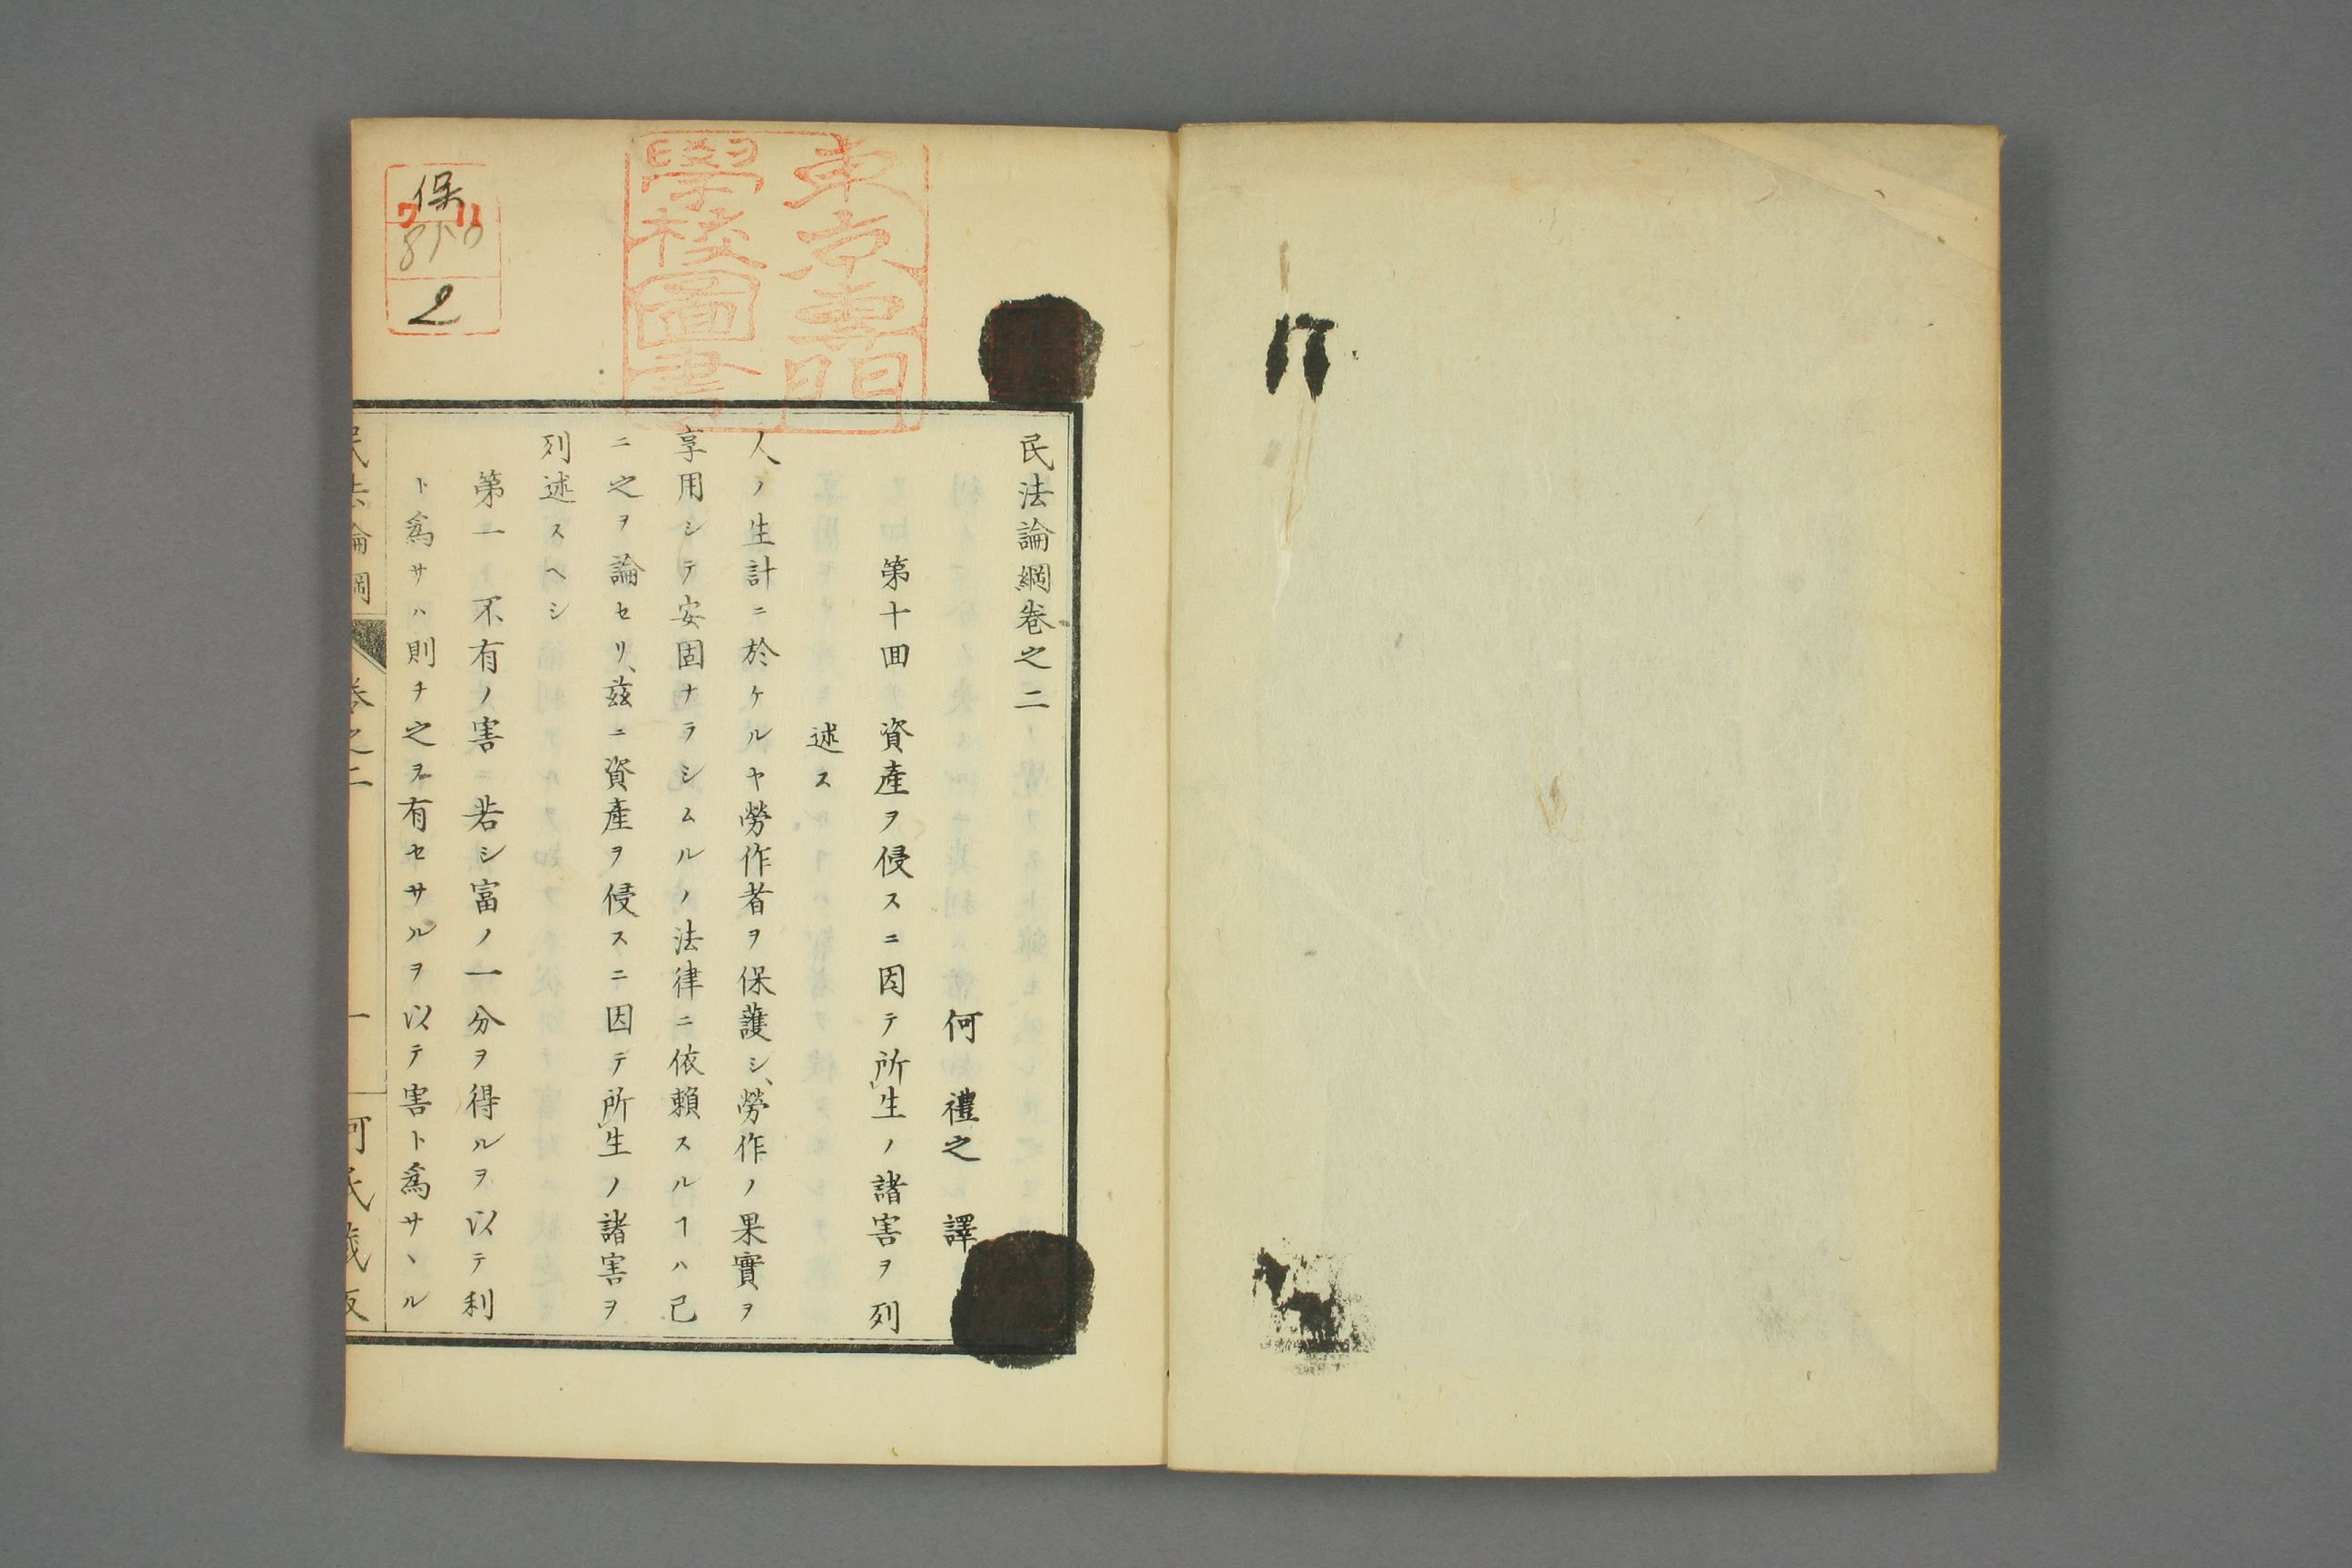 東京專門
學校圖書
保
ワ 11
850
2
民法論綱卷之二
何禮之譯
第十囬 資產ヲ侵スニ因テ所生ノ諸害ヲ列
述ス
人ノ生計ニ於ケルヤ勞作者ヲ保護シ、勞作ノ果實ヲ
享用シテ安固ナラシムルノ法律ニ依賴スルヿハ已
ニ之ヲ論セリ、茲ニ資產ヲ侵スニ因テ所生ノ諸害ヲ
列述スヘシ
第一 不有ノ害 若シ富ノ一分ヲ得ルヲ以テ利
ト爲サハ則チ之ヲ有セサルヲ以テ害ト爲サヽル
民法論綱 卷之二 一 何氏藏版